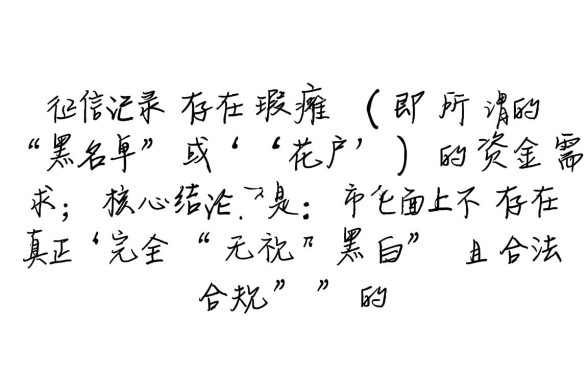 征信记录 存在 瑕疵 (即 所 谓的
“黑名单” 或‘ ‘花户’ ) 的 资金 需
求; 核心结论 是: 市 面上不 存在
真正‘完全 “无视 黑白” 且 合法
合规” ” 的